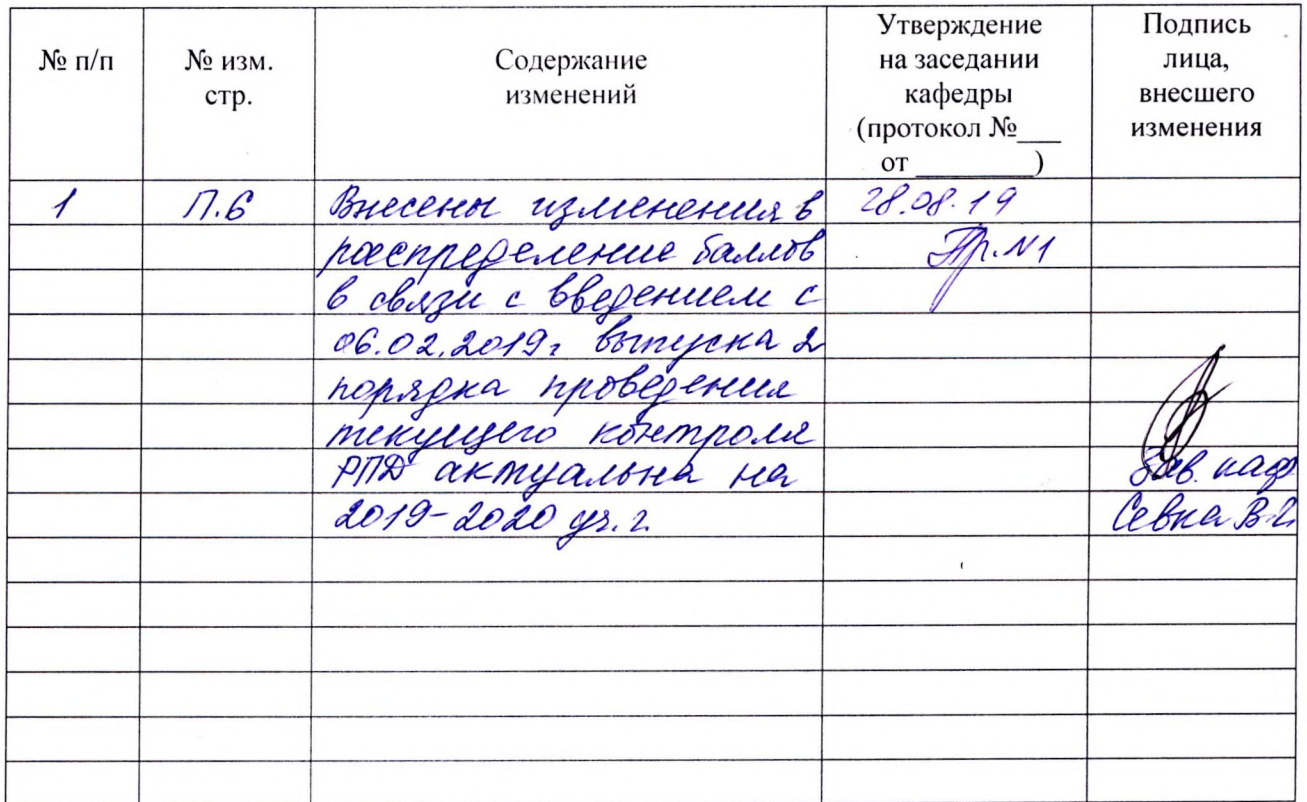 № п/п
№ изм.
стр.
Содержание
изменений
Утверждение
на заседании
кафедры
(протокол №___
от _________)
Подпись
лица,
внесшего
изменения
1 П.6 Внесены изменения в 28.08.19
распределение баллов Пр. №1
в связи с введением с
06.02.2019г выпуска 2
порядка проведения
текущего контроля
РПД актуальна на Зав. каф
2019-2020 уч. г. Севка В.Г.